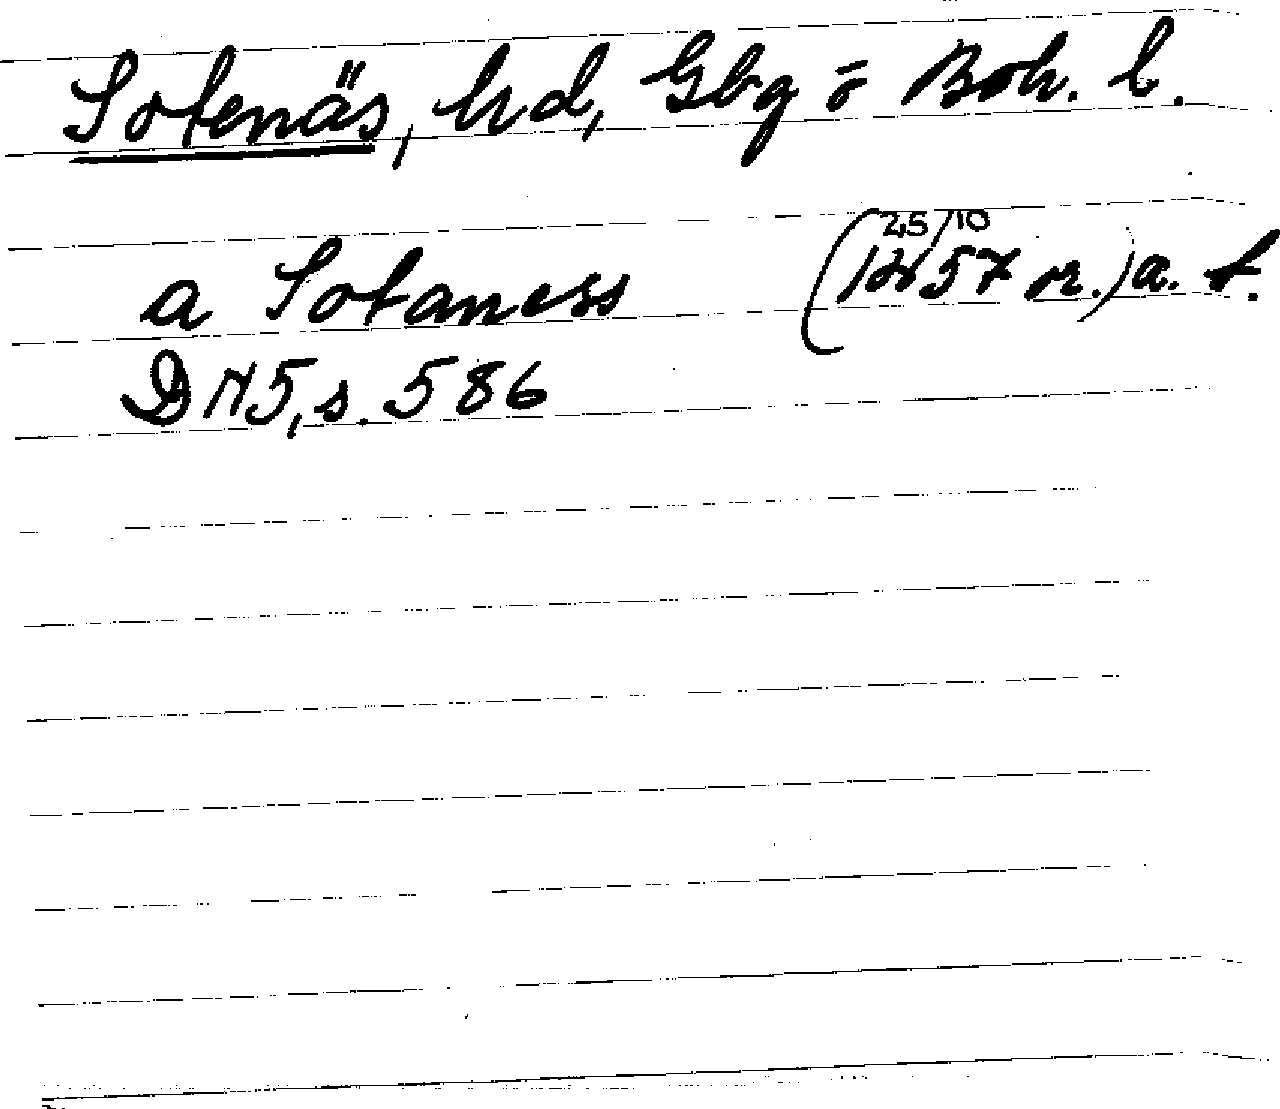 Sotenäs, hd, Gbg o Boh. l.
a Sotaness (25/10 1257 or.) a. f.
DN 5, s. 586